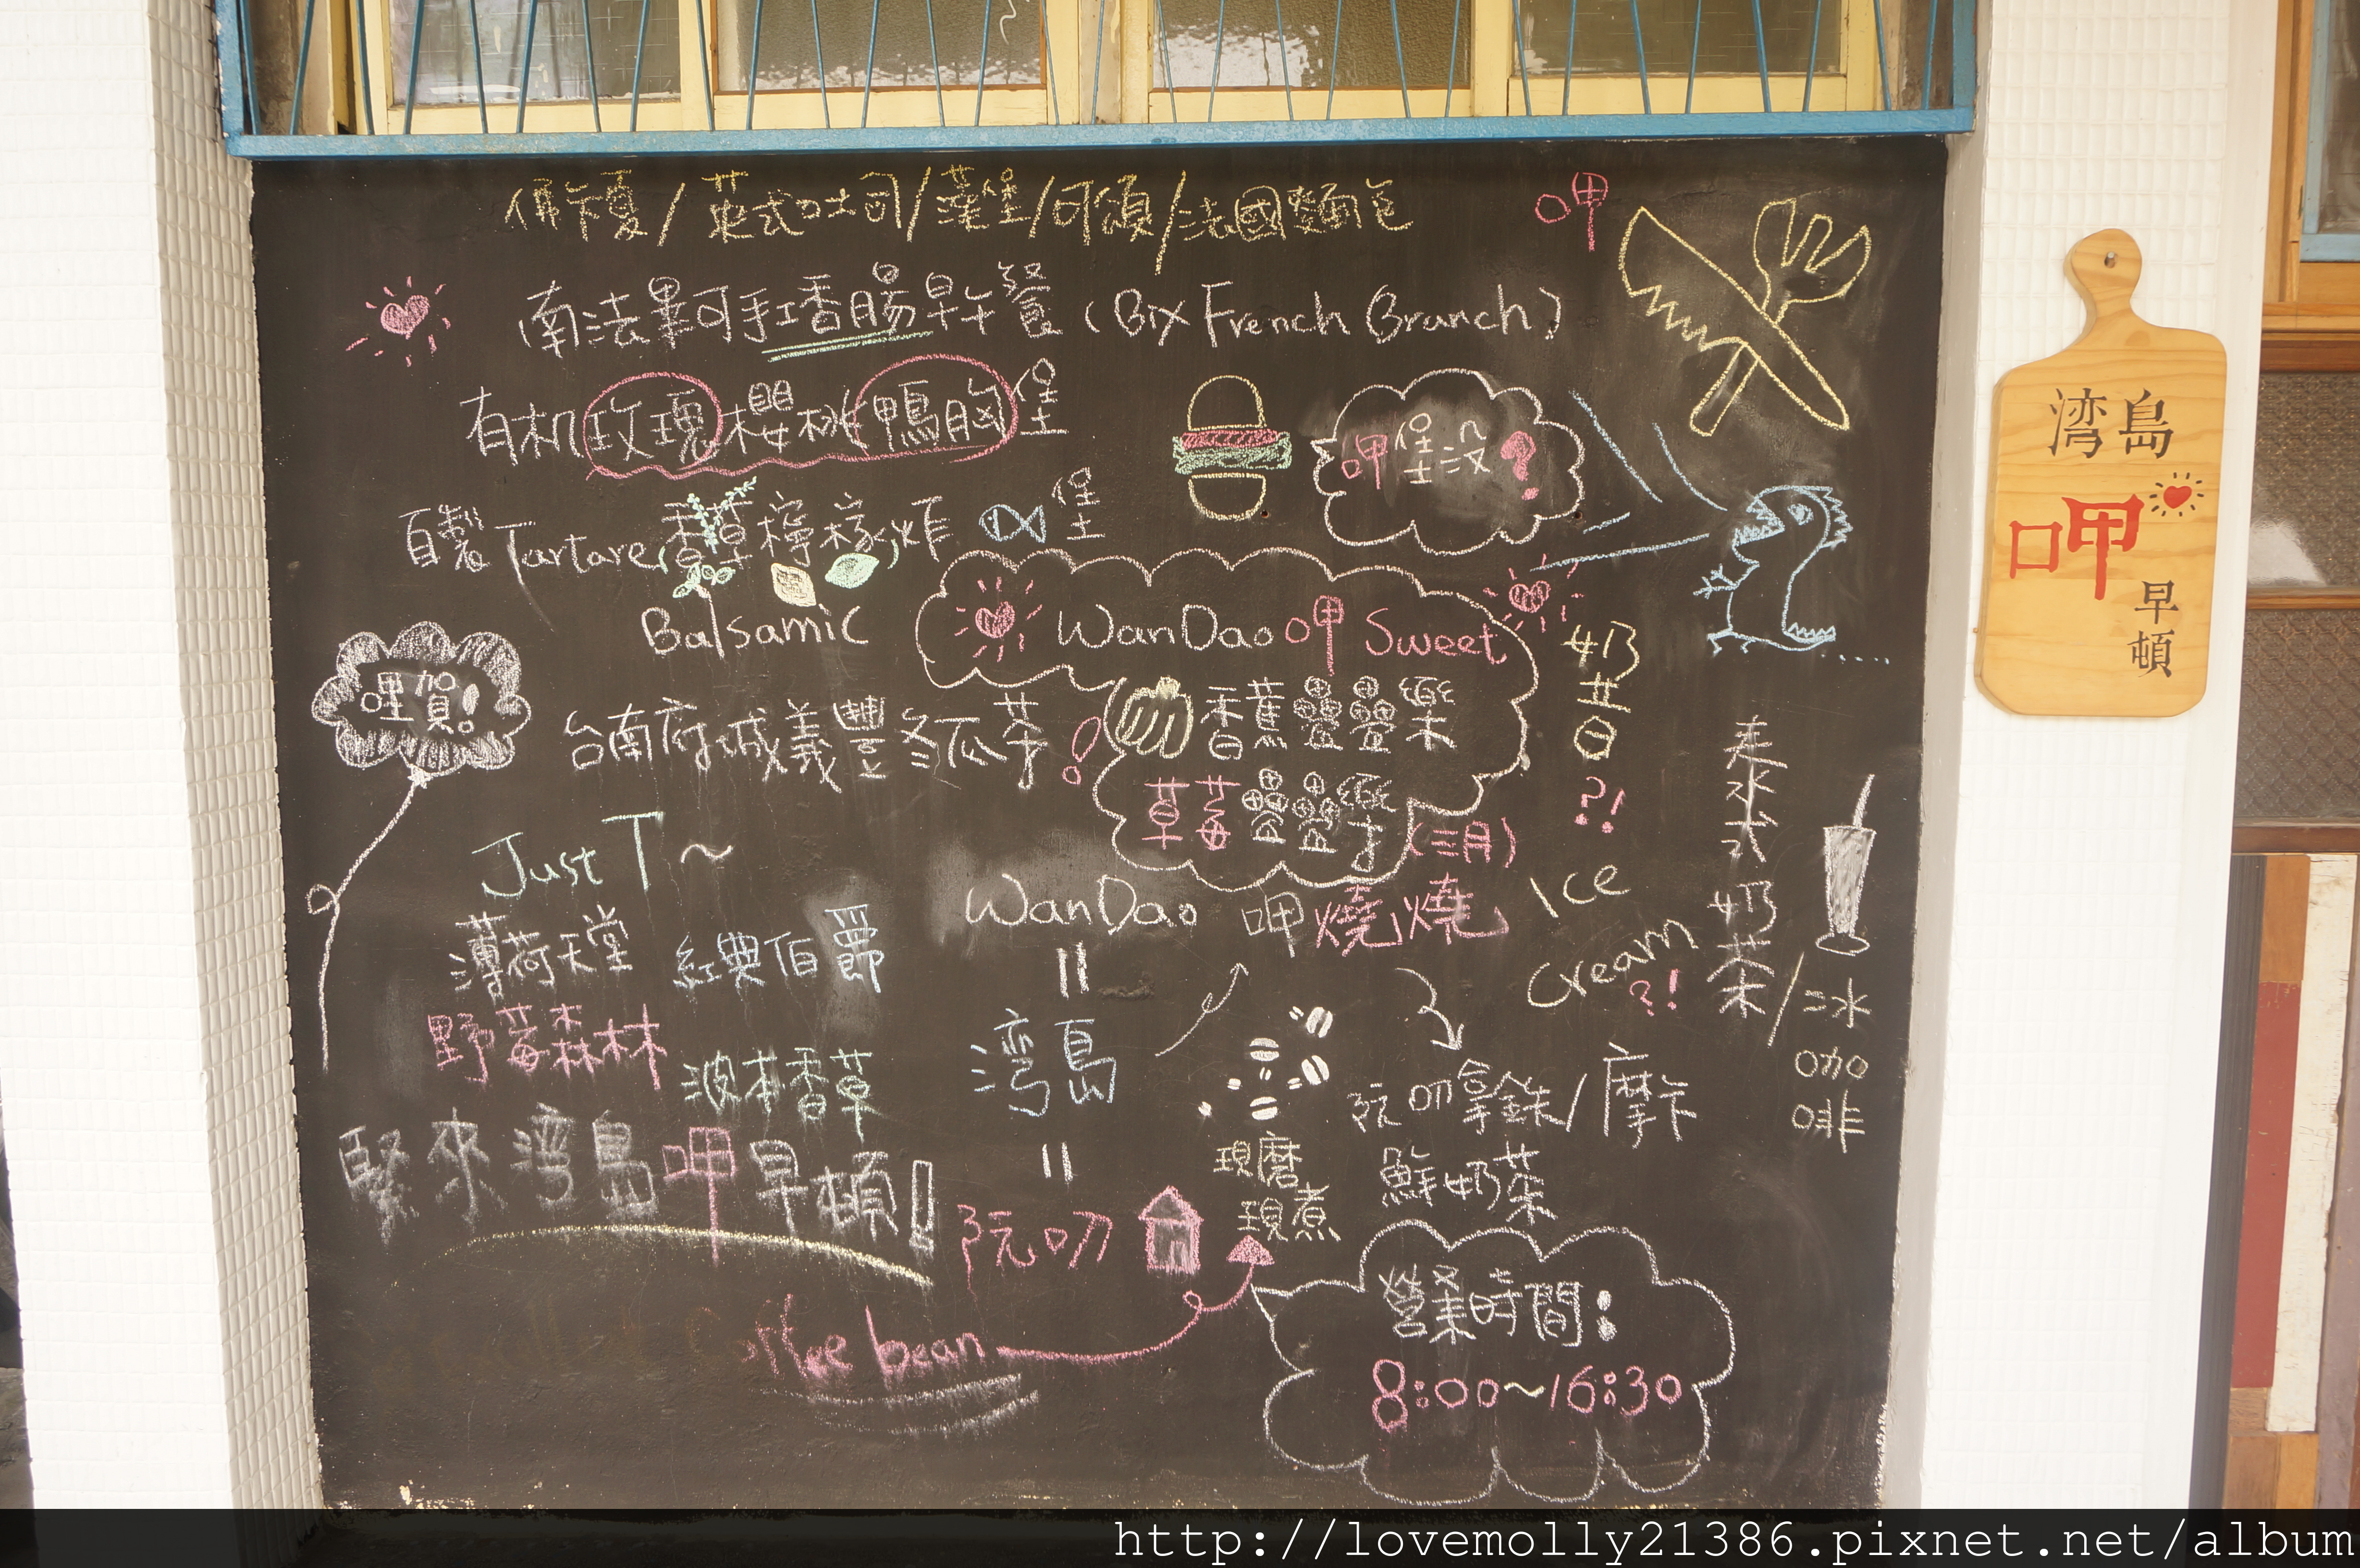 佛卡夏/英式吐司/漢堡/可頌/法國麵包
呷
南法畢耶手工香腸早午餐 (Big French Brunch)
有机玫瑰櫻桃鴨胸堡
呷堡沒?
自製Tartare香草檸檬炸 堡
Balsamic
WanDao 呷 Sweet
香蕉疊疊樂
草莓疊疊樂(三月)
奶昔?!
Ice Cream?!
哩賀!
台南府城義豐冬瓜茶!
泰冰式奶茶/冰咖啡
Just T~
薄荷天堂 經典伯爵
野莓森林 波本香草
WanDao 呷燒燒
=
湾島
=
阮叨
阮叨拿鐵/摩卡
鮮奶茶
現磨
現煮
緊來湾島呷早頓!
Coffee bean
營業時間:
8:00~16:30
湾島
呷
早頓
http://lovemolly21386.pixnet.net/album